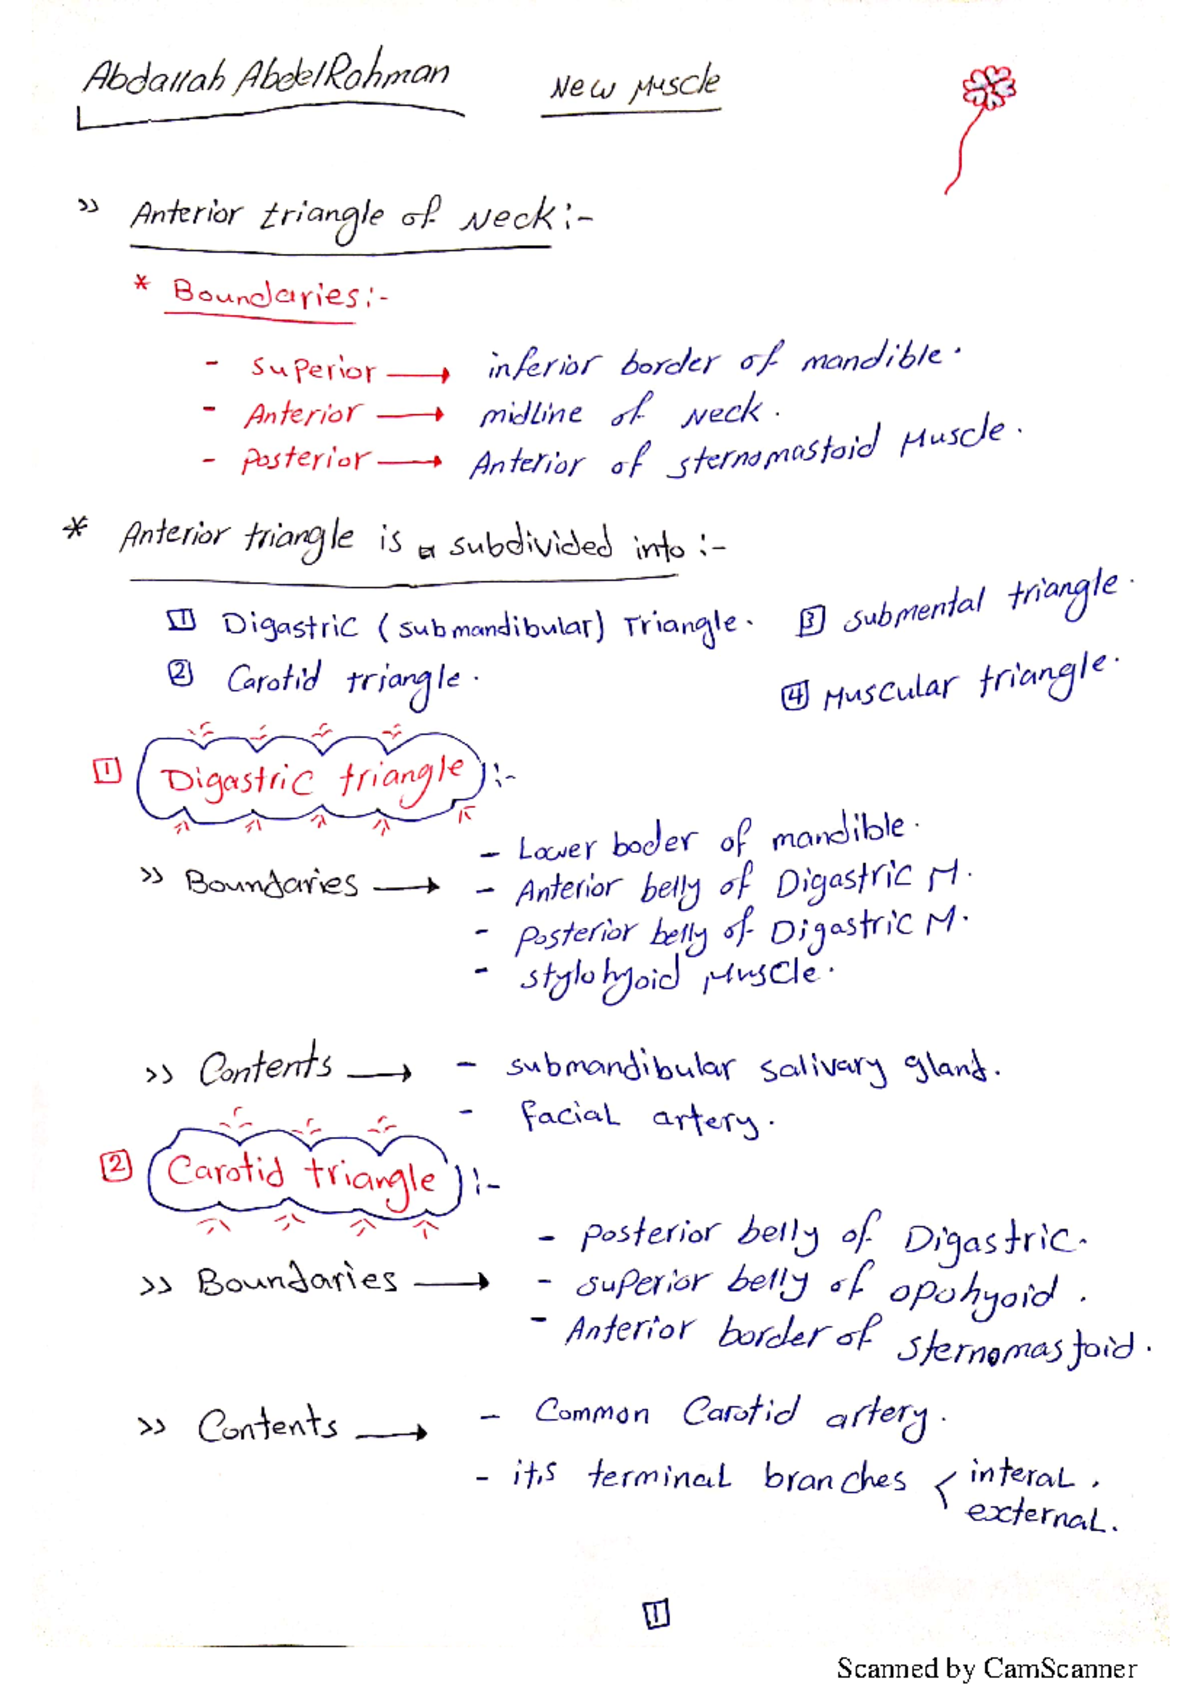 Abdallah AbdelRahman New Muscle
>> Anterior triangle of Neck:-
* Boundaries:-
- Superior → inferior border of mandible.
- Anterior → midline of Neck.
- Posterior → Anterior of sternomastoid Muscle.
* Anterior triangle is subdivided into:-
1 Digastric (submandibular) Triangle. 3 submental triangle.
2 Carotid triangle. 4 Muscular triangle.
1 Digastric triangle :-
>> Boundaries → - Lower boder of mandible.
- Anterior belly of Digastric M.
- Posterior belly of Digastric M.
- stylohyoid Muscle.
>> Contents → - submandibular salivary gland.
- facial artery.
2 Carotid triangle :-
>> Boundaries → - Posterior belly of Digastric.
- superior belly of opohyoid.
- Anterior border of sternomastoid.
>> Contents → - Common Carotid artery.
- it,s terminal branches < interal.
external.
1
Scanned by CamScanner